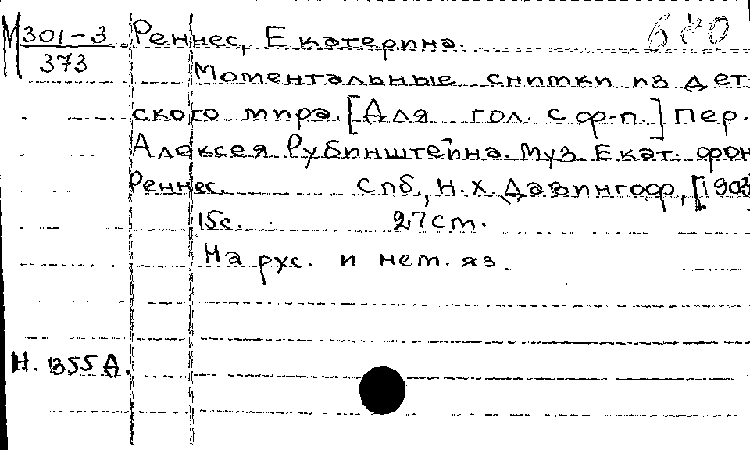 М 301-3 Реннес, Екатерина. 680
373
Моментальные снимки из дет
ского мира. [Для гол. с ф-п.] Пер.
Алексея Рубинштейна. Муз. Екат. фон
Реннес. Спб., Н. Х. Давингоф, [1903
15с. 27 см.
На рус. и нем. яз.
Н. 1355 А.